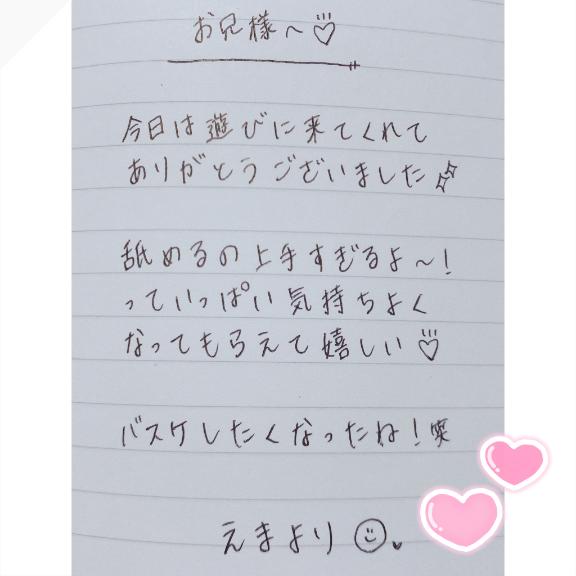 お兄様〜♡
今日は遊びに来てくれて
ありがとうございました✨
舐めるの上手すぎるよ〜!
っていっぱい気持ちよく
なってもらえて嬉しい♡
バスケしたくなったね!笑
えまより☺♥